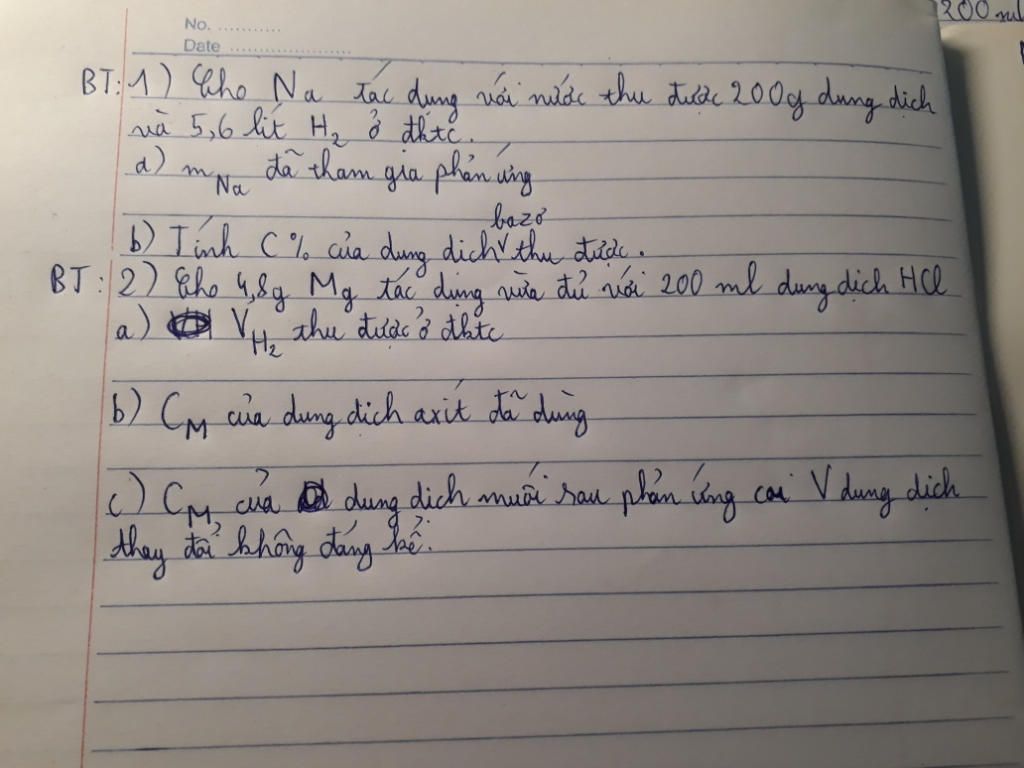 200 ml
No. ...........
Date .....................
BT: 1) Cho Na tác dụng với nước thu được 200g dung dịch
và 5,6 lít H2 ở đktc.
a) mNa đã tham gia phản ứng
bazơ
b) Tính C% của dung dịch v thu được.
BT: 2) Cho 4,8g Mg tác dụng vừa đủ với 200 ml dung dịch HCl
a) VH2 thu được ở đktc
b) CM của dung dịch axít đã dùng
c) CM của dung dịch muối sau phản ứng coi V dung dịch
thay đổi không đáng kể.